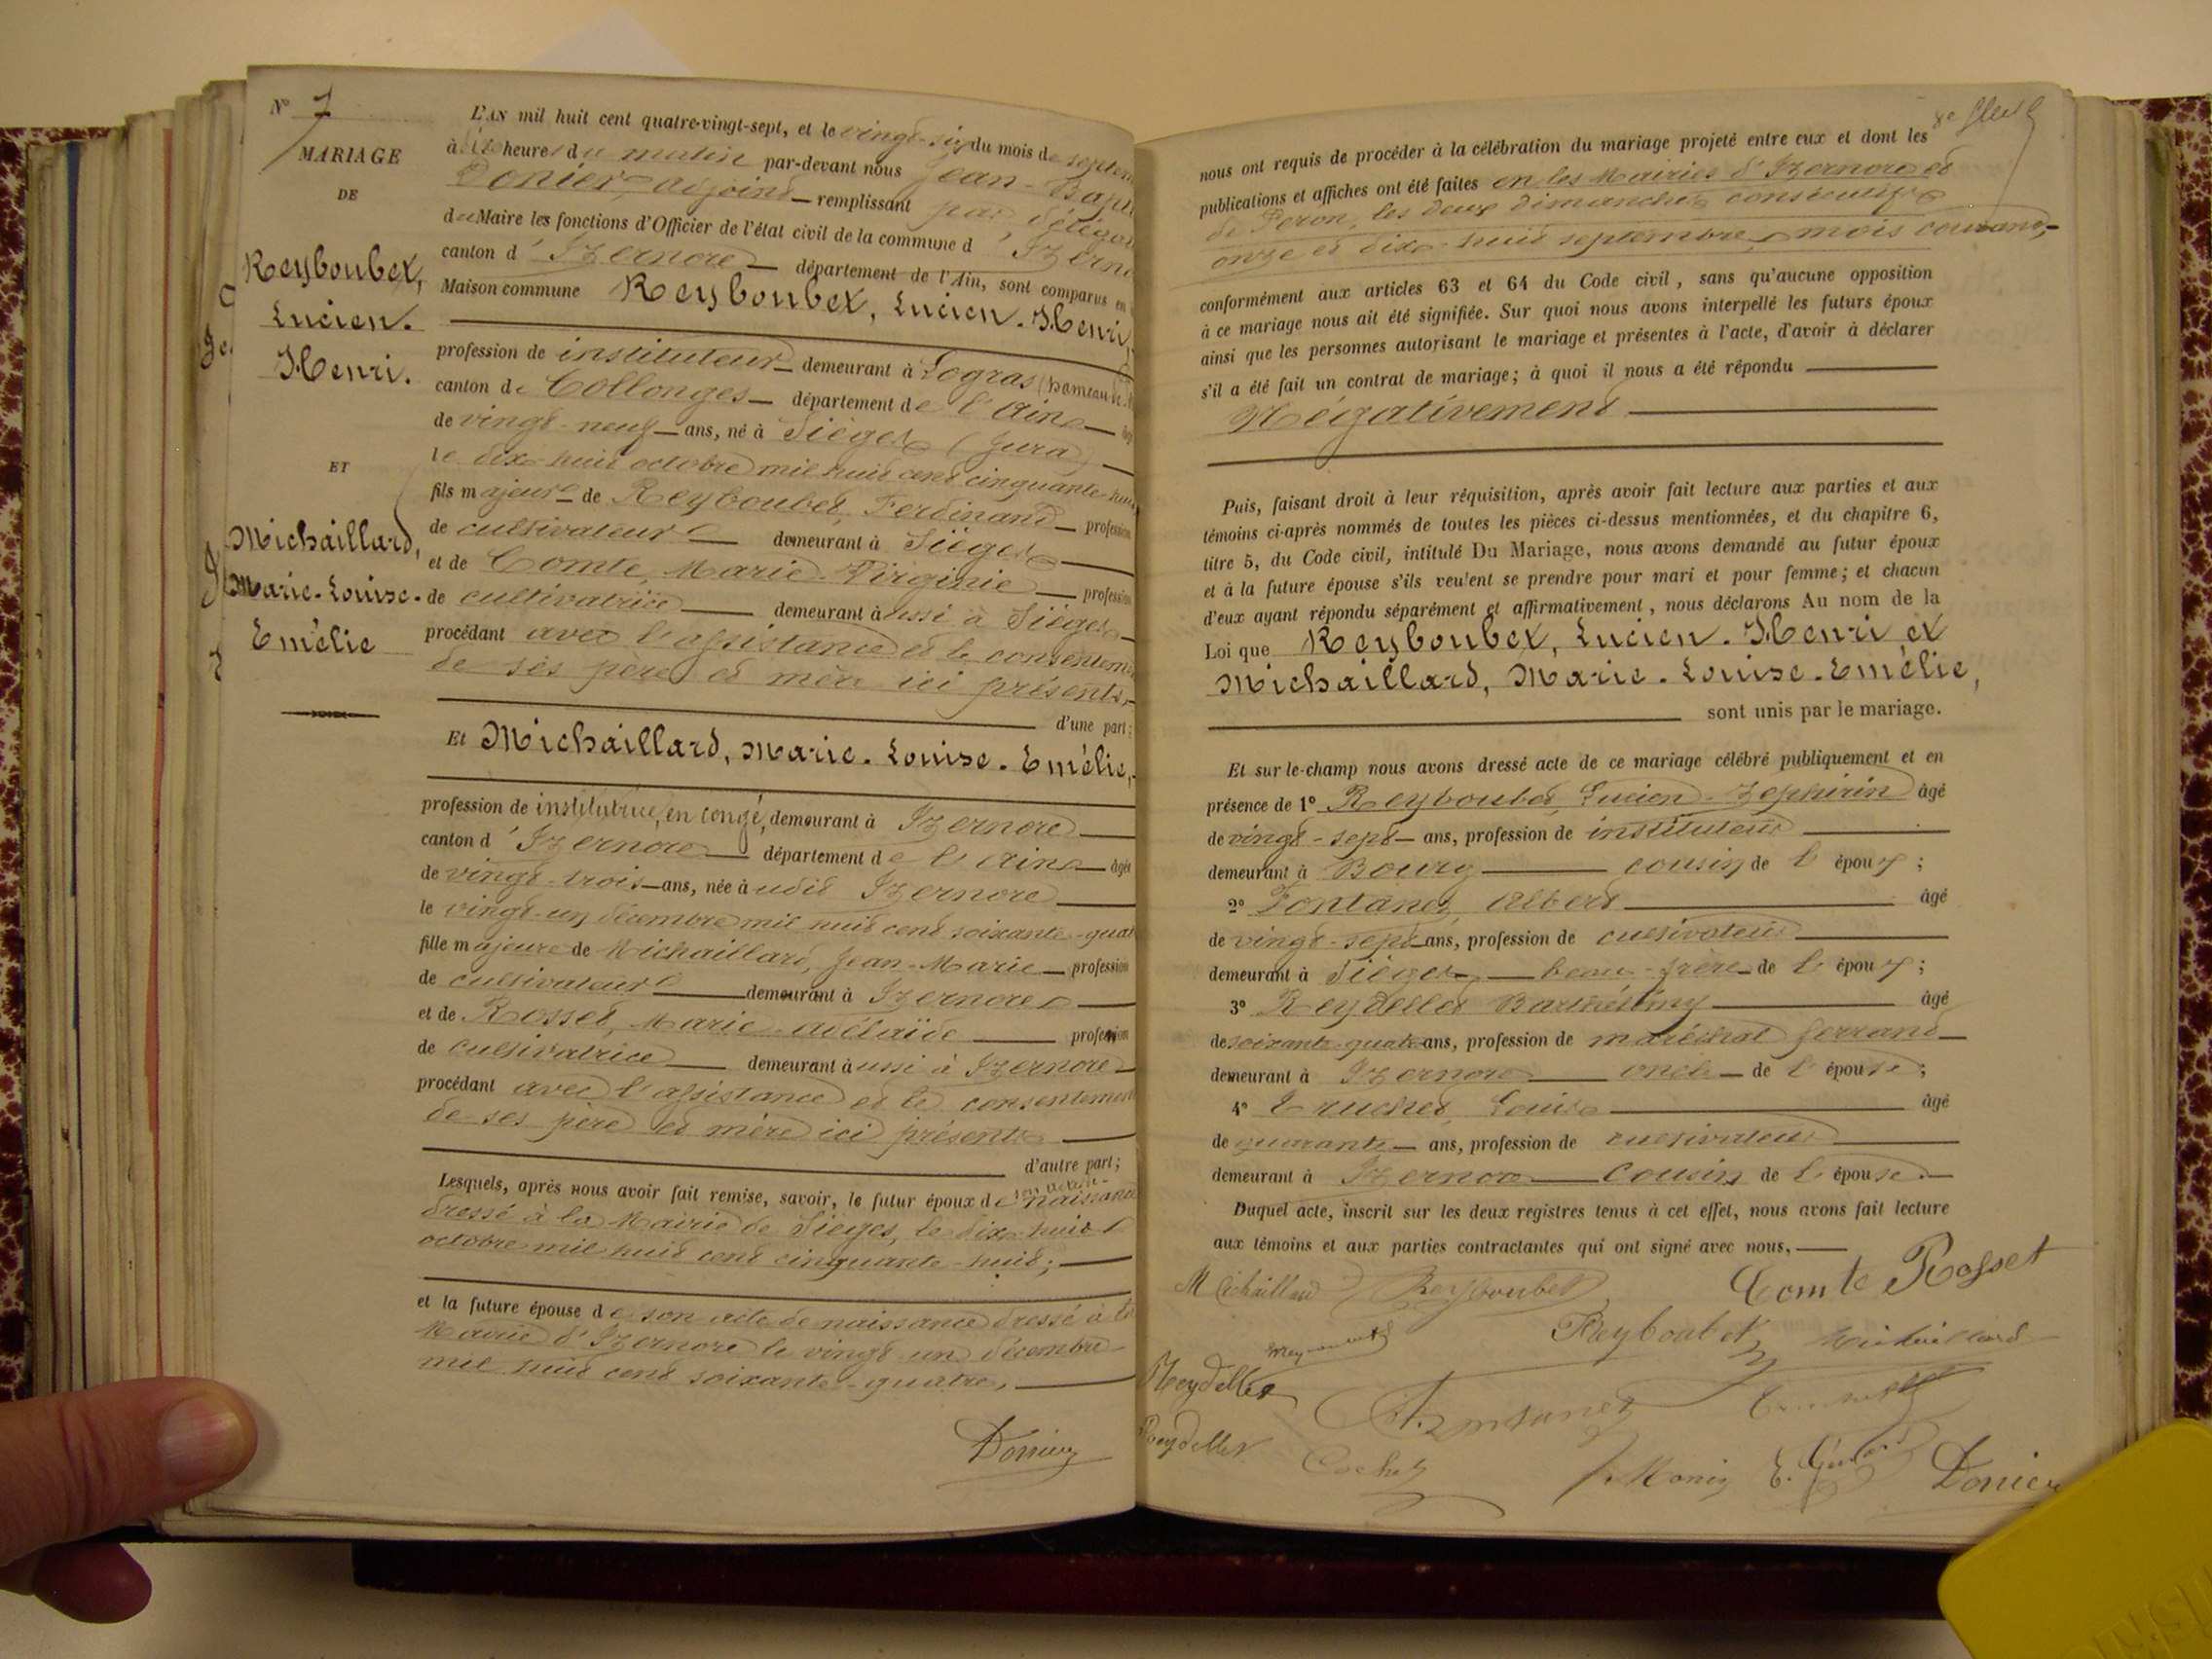 N° 7
MARIAGE
DE
Reyboubet,
Lucien.
Henri.
ET
Michaillard,
Marie-Louise-
Emélie
L'AN mil huit cent quatre-vingt-sept, et le vingt-six du mois de septem
à dix heures du matin par-devant nous Jean-Bapti
Donier, adjoint remplissant par délégat
du Maire les fonctions d'Officier de l'état civil de la commune d'Izerno
canton d'Izernore département de l'Ain, sont comparus en
Maison commune Reyboubet, Lucien-Henri,
profession de instituteur demeurant à Logras (hameau de
canton de Collonges département de l'Ain
de vingt-neuf ans, né à Sièges (Jura)
le dix-huit octobre mil huit cent cinquante-huit
fils majeur de Reyboubet, Ferdinand profession
de cultivateur demeurant à Sièges
et de Comte, Marie-Virginie profession
de cultivatrice demeurant aussi à Sièges
procédant avec l'assistance et le consentem
de ses père et mère ici présents,
d'une part;
Et Michaillard, Marie-Louise-Emélie,
profession de institutrice, en congé, demeurant à Izernore
canton d'Izernore département de l'Ain âgée
de vingt-trois ans, née à udit Izernore
le vingt-un décembre mil huit cent soixante-quat
fille majeure de Michaillard, Jean-Marie profession
de cultivateur demeurant à Izernore
et de Rosset, Marie-Adélaïde profession
de cultivatrice demeurant aussi à Izernore
procédant avec l'assistance et le consentement
de ses père et mère ici présents
d'autre part;
Lesquels, après nous avoir fait remise, savoir, le futur époux de son acte de naissance
dressé à la Mairie de Sièges, le dix-huit
octobre mil huit cent cinquante-huit;
et la future épouse de son acte de naissance dressé à la
Mairie d'Izernore le vingt-un décembre
mil huit cent soixante-quatre,
Donier
nous ont requis de procéder à la célébration du mariage projeté entre eux et dont les
publications et affiches ont été faites en les Mairies d'Izernore et
de Peron, les deux dimanches consécutifs
onze et dix-huit septembre, mois courant,
conformément aux articles 63 et 64 du Code civil, sans qu'aucune opposition
à ce mariage nous ait été signifiée. Sur quoi nous avons interpellé les futurs époux
ainsi que les personnes autorisant le mariage et présentes à l'acte, d'avoir à déclarer
s'il a été fait un contrat de mariage; à quoi il nous a été répondu
Négativement
Puis, faisant droit à leur réquisition, après avoir fait lecture aux parties et aux
témoins ci-après nommés de toutes les pièces ci-dessus mentionnées, et du chapitre 6,
titre 5, du Code civil, intitulé Du Mariage, nous avons demandé au futur époux
et à la future épouse s'ils veulent se prendre pour mari et pour femme; et chacun
d'eux ayant répondu séparément et affirmativement, nous déclarons Au nom de la
Loi que Reyboubet, Lucien-Henri et
Michaillard, Marie-Louise-Emélie,
sont unis par le mariage.
Et sur-le-champ nous avons dressé acte de ce mariage célébré publiquement et en
présence de 1° Reyboubet, Lucien-Zephirin âgé
de vingt-sept ans, profession de instituteur
demeurant à Bourg cousin de l'époux;
2° Fontanez, Albert âgé
de vingt-sept ans, profession de cultivateur
demeurant à Sièges beau-frère de l'époux;
3° Reydellet Barthélémy âgé
de soixante-quatre ans, profession de maréchal ferrand
demeurant à Izernore oncle de l'épouse;
4° Truchet, Louis âgé
de quarante ans, profession de cultivateur
demeurant à Izernore cousin de l'épouse.
Duquel acte, inscrit sur les deux registres tenus à cet effet, nous avons fait lecture
aux témoins et aux parties contractantes qui ont signé avec nous,
M Michaillard Reyboubet Comte Rosset
Reyboubet Michaillard
Reydellet Fontanez Truchet
Reydellet Cochet Monin Donier